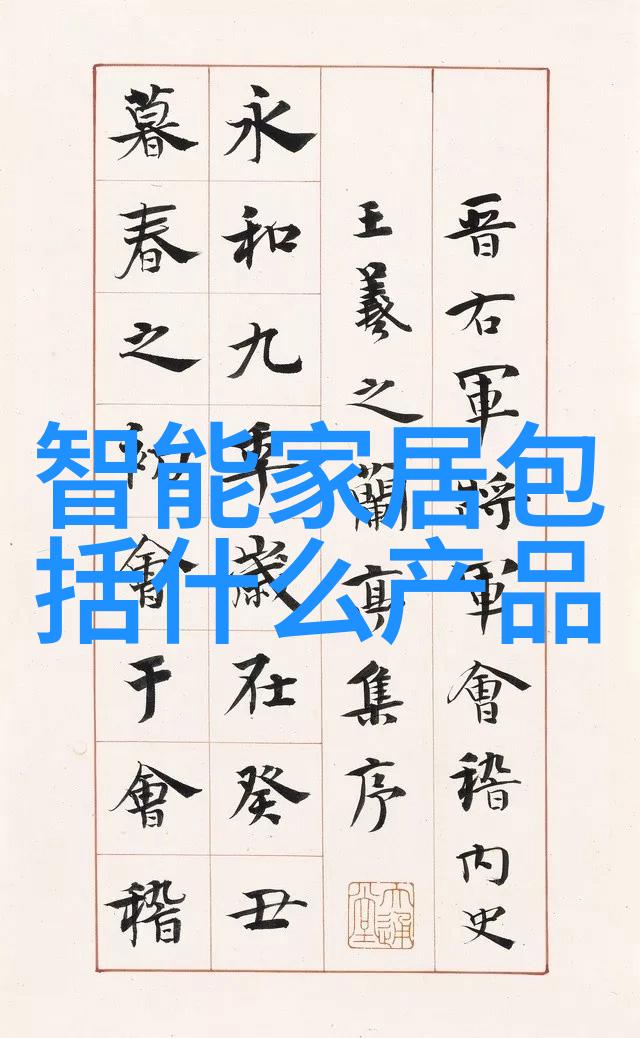 智能家居包
括什么产品
晋右軍將軍會稽内史
王羲之蘭亭集序
永和九年歲在癸丑
暮春之初會于會稽